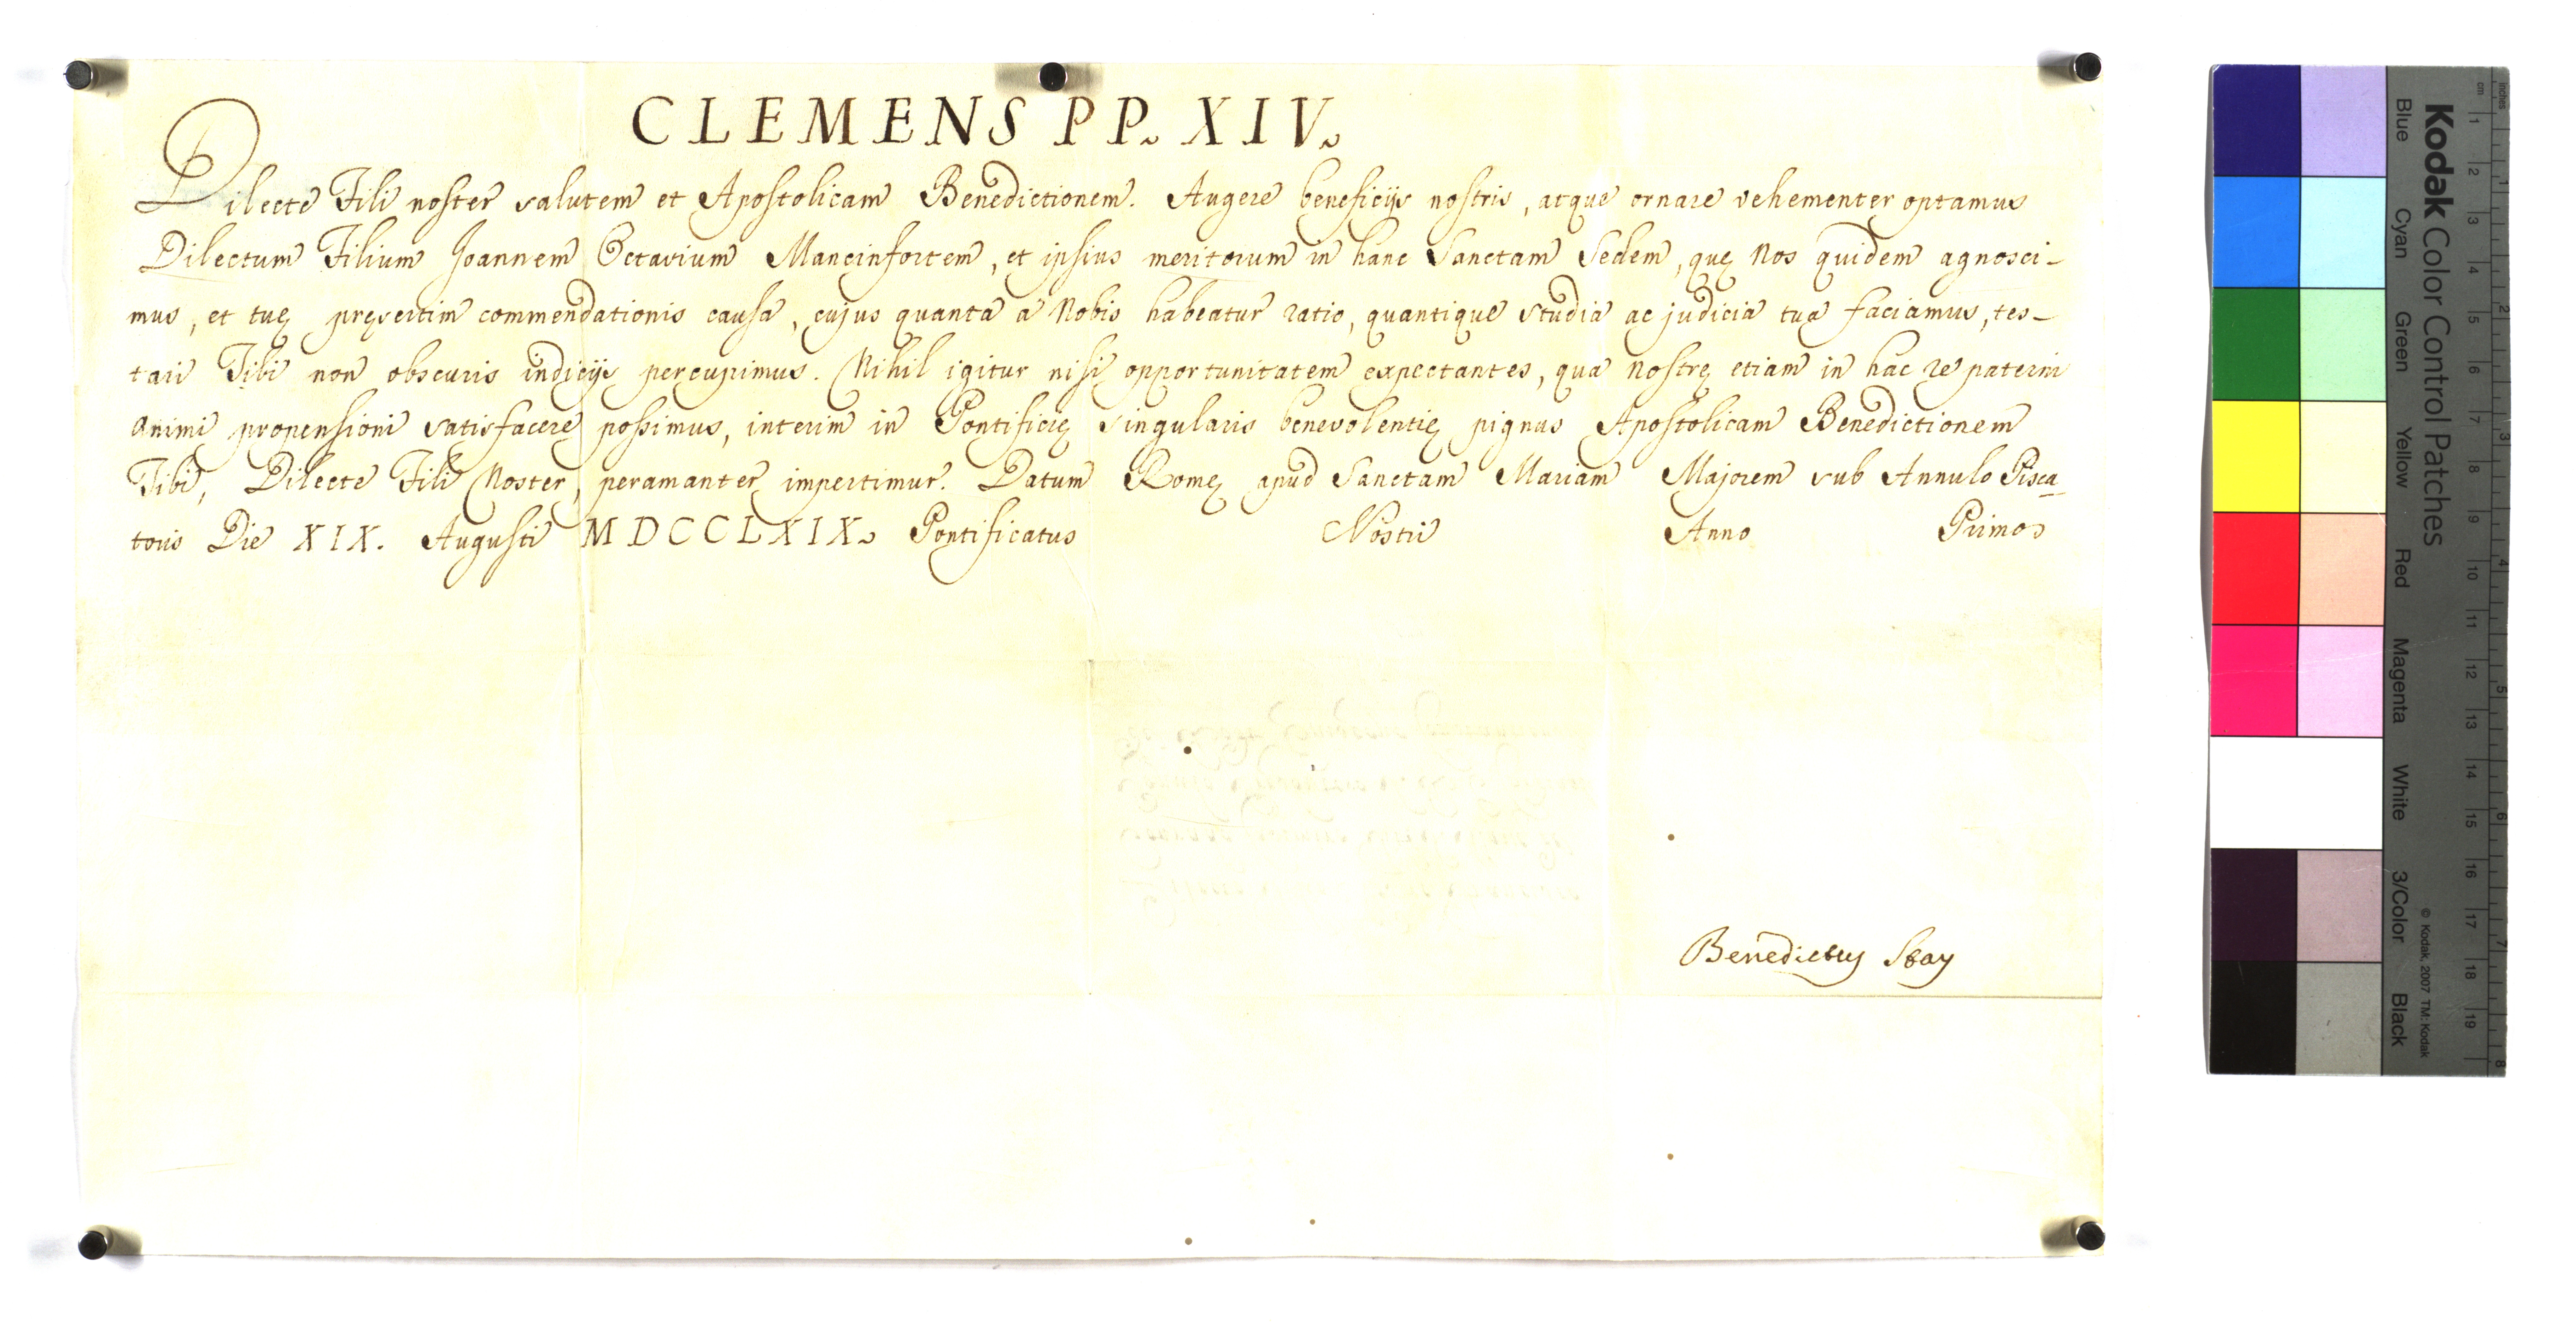 CLEMENS PP. XIV.
Dilecte Fili noster salutem et Apostolicam Benedictionem. Augere beneficijs nostris, atque ornare vehementer optamus
Dilectum Filium Joannem Octavium Mancinfortem, et ipsius meritorum in hanc Sanctam Sedem, quę Nos quidem agnosci-
mus, et tuę pręsertim commendationis causa, cujus quanta a Nobis habeatur ratio, quantique studia ac judicia tua faciamus, tes-
tari Tibi non obscuris indicijs percupimus. Nihil igitur nisi opportunitatem expectantes, qua nostrę etiam in hac re paterni
animi propensioni satisfacere possimus, interim in Pontificię singularis benevolentię pignus Apostolicam Benedictionem
Tibi, Dilecte Fili Noster, peramanter impertimur. Datum Romę apud Sanctam Mariam Majorem sub Annulo Pisca-
toris Die XIX. Augusti MDCCLXIX. Pontificatus Nostri Anno Primo
Benedictus Stay
Kodak Color Control Patches
© Kodak, 2007 TM: Kodak
Blue Cyan Green Yellow Red Magenta White 3/Color Black
inches 1 2 3 4 5 6 7 8
cm 1 2 3 4 5 6 7 8 9 10 11 12 13 14 15 16 17 18 19